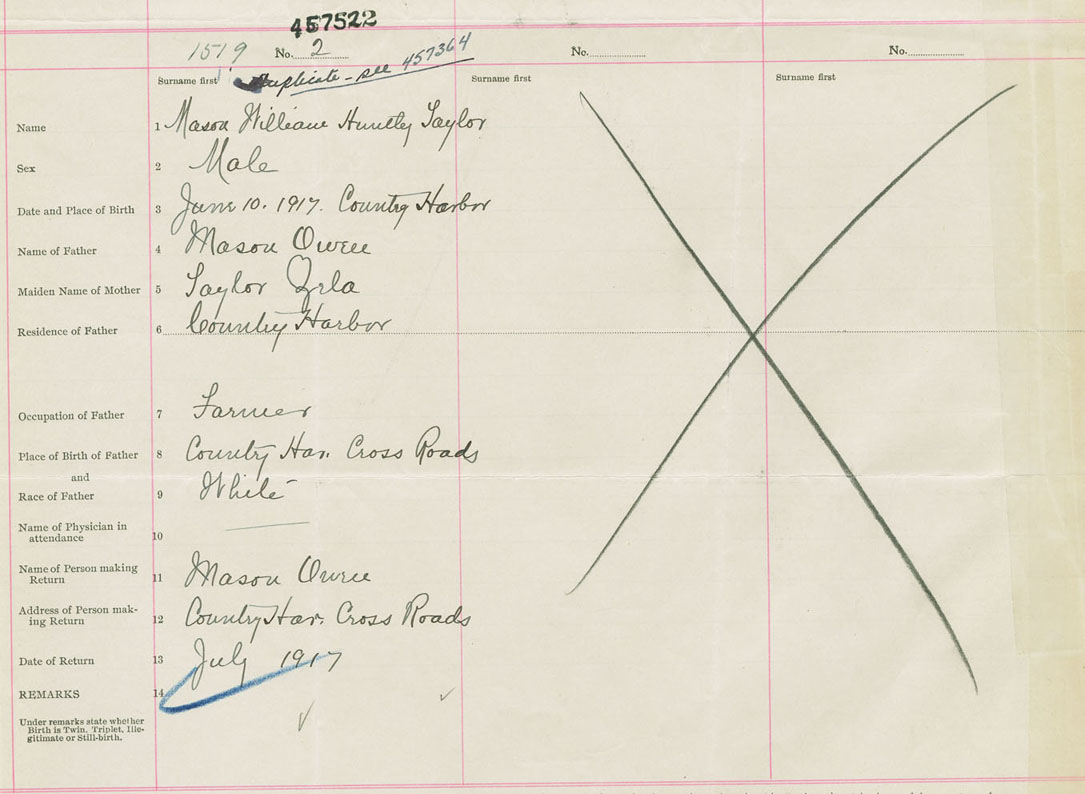 457522
1519 No. 2 No. No.
Duplicate - see 457364
Surname first Surname first Surname first
Name 1 Mason William Huntly Taylor
Sex 2 Male
Date and Place of Birth 3 June 10. 1917. Country Harbor
Name of Father 4 Mason Owen
Maiden Name of Mother 5 Taylor Zrla
Residence of Father 6 Country Harbor
Occupation of Father 7 Farmer
Place of Birth of Father 8 Country Har. Cross Roads
and
Race of Father 9 White
Name of Physician in
attendance 10
Name of Person making
Return 11 Mason Owen
Address of Person mak-
ing Return 12 Country Har. Cross Roads
Date of Return 13 July 1917
REMARKS 14
Under remarks state whether
Birth is Twin, Triplet, Ille-
gitimate or Still-birth.